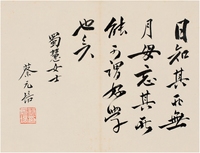 日知其所無
月毋忘其所
能可謂好學
也矣
蜀慧女士
蔡元培